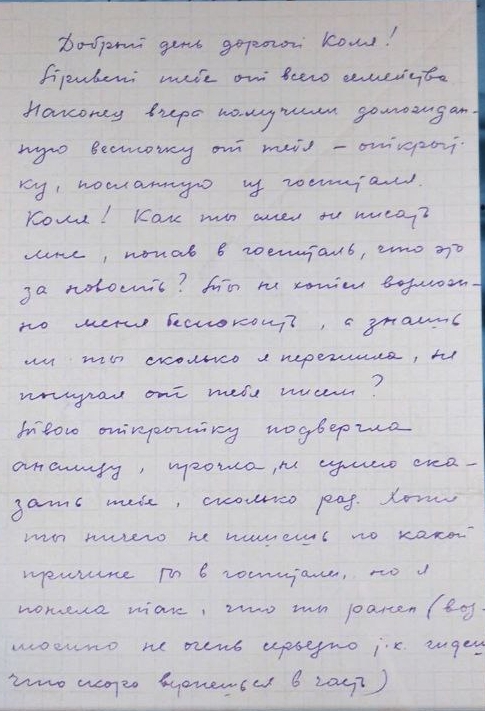 Добрый день дорогой Коля!
Привет тебе от всего семейства
Наконец вчера получили долгождан-
ную весточку от тебя – открыт-
ку, посланную из госпиталя.
Коля! Как ты смел не писать
мне, попав в госпиталь, что это
за новость? Ты не хотел возмож-
но меня беспокоить, а знаешь
ли ты сколько я пережила, не
получая от тебя писем?
Твою открытку подвергла
анализу, прочла, не сумею ска-
зать тебе, сколько раз. Хотя
ты ничего не пишешь по какой
причине ты в госпитале, но я
поняла так, что ты ранен (воз-
можно не очень серьезно т.к. пишешь
что скоро вернешься в часть)